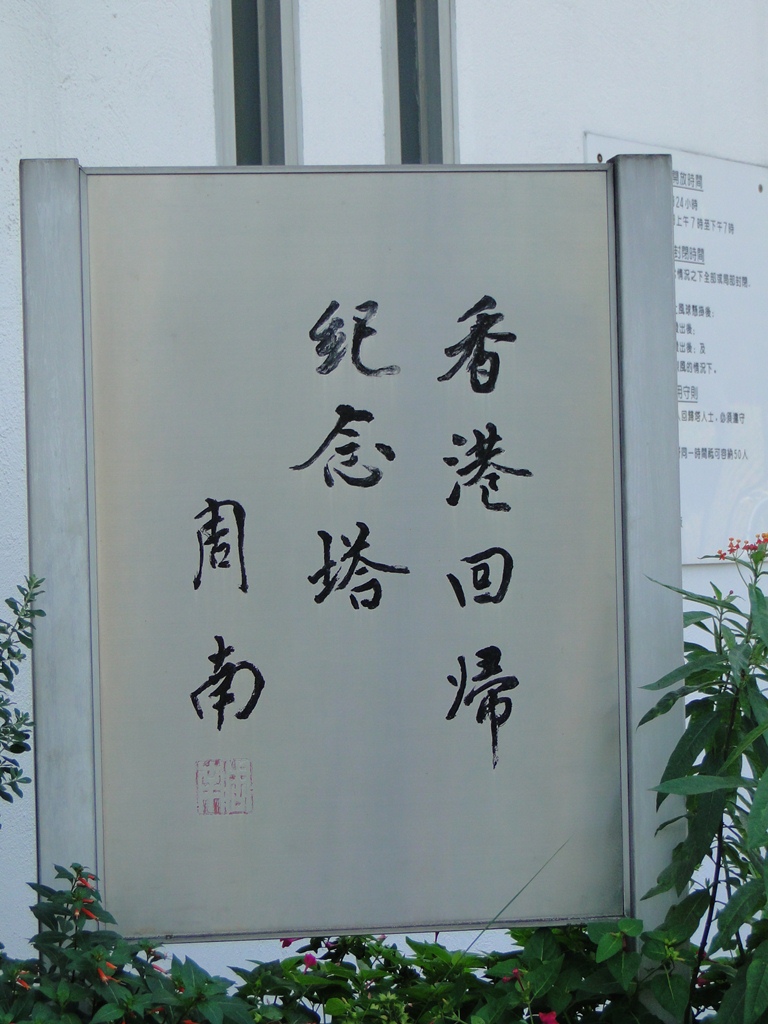 香港回帰
紀念塔
周南
開放時間
24小時
上午7時至下午7時
封閉時間
情況之下全部或局部封閉.
風球懸掛後」
出後」
出後」及
風的情況下。
用守則
回歸塔人士、必須遵守
同一時間祗可容納50人